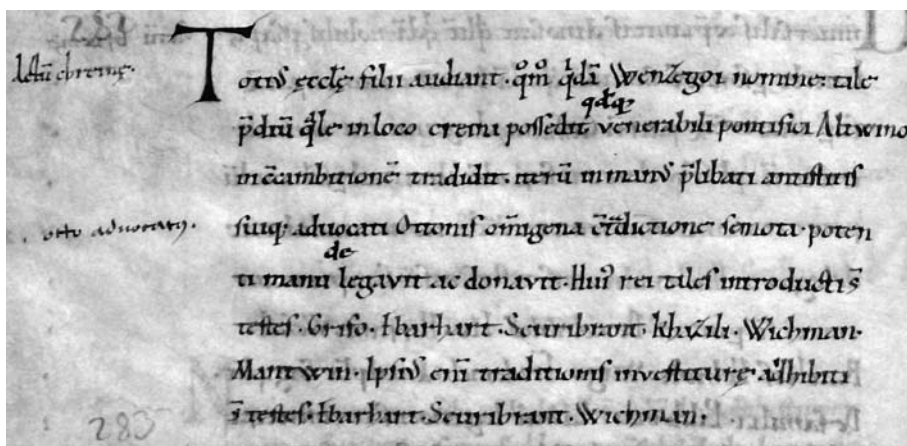 283
Totiꝰ ęcclę filii audiant · qm̊ qdā Wenzegoi nomine : tale
p̄diū q̄le in loco cremi possedit venerabili pontifici Altwino
in c̄cambitionē tradidit · iterū in manꝰ p̄libati antistitis
otto aduocatꝰ .
suiq; aduocati Ottonis om̄igena c̄t̄dictione semota · poten
de
ti manu legavit ac donavit · Huiꝰ rei tales introducti s̄
testes · Griso · Ebarhart · Scuribrant · Khazili · Wichman ·
Mantwin · Ipsiꝰ eni̅ traditionis investiturę adhibiti
s̄ testes · Ebarhart · Scuribrant · Wichman ·
283